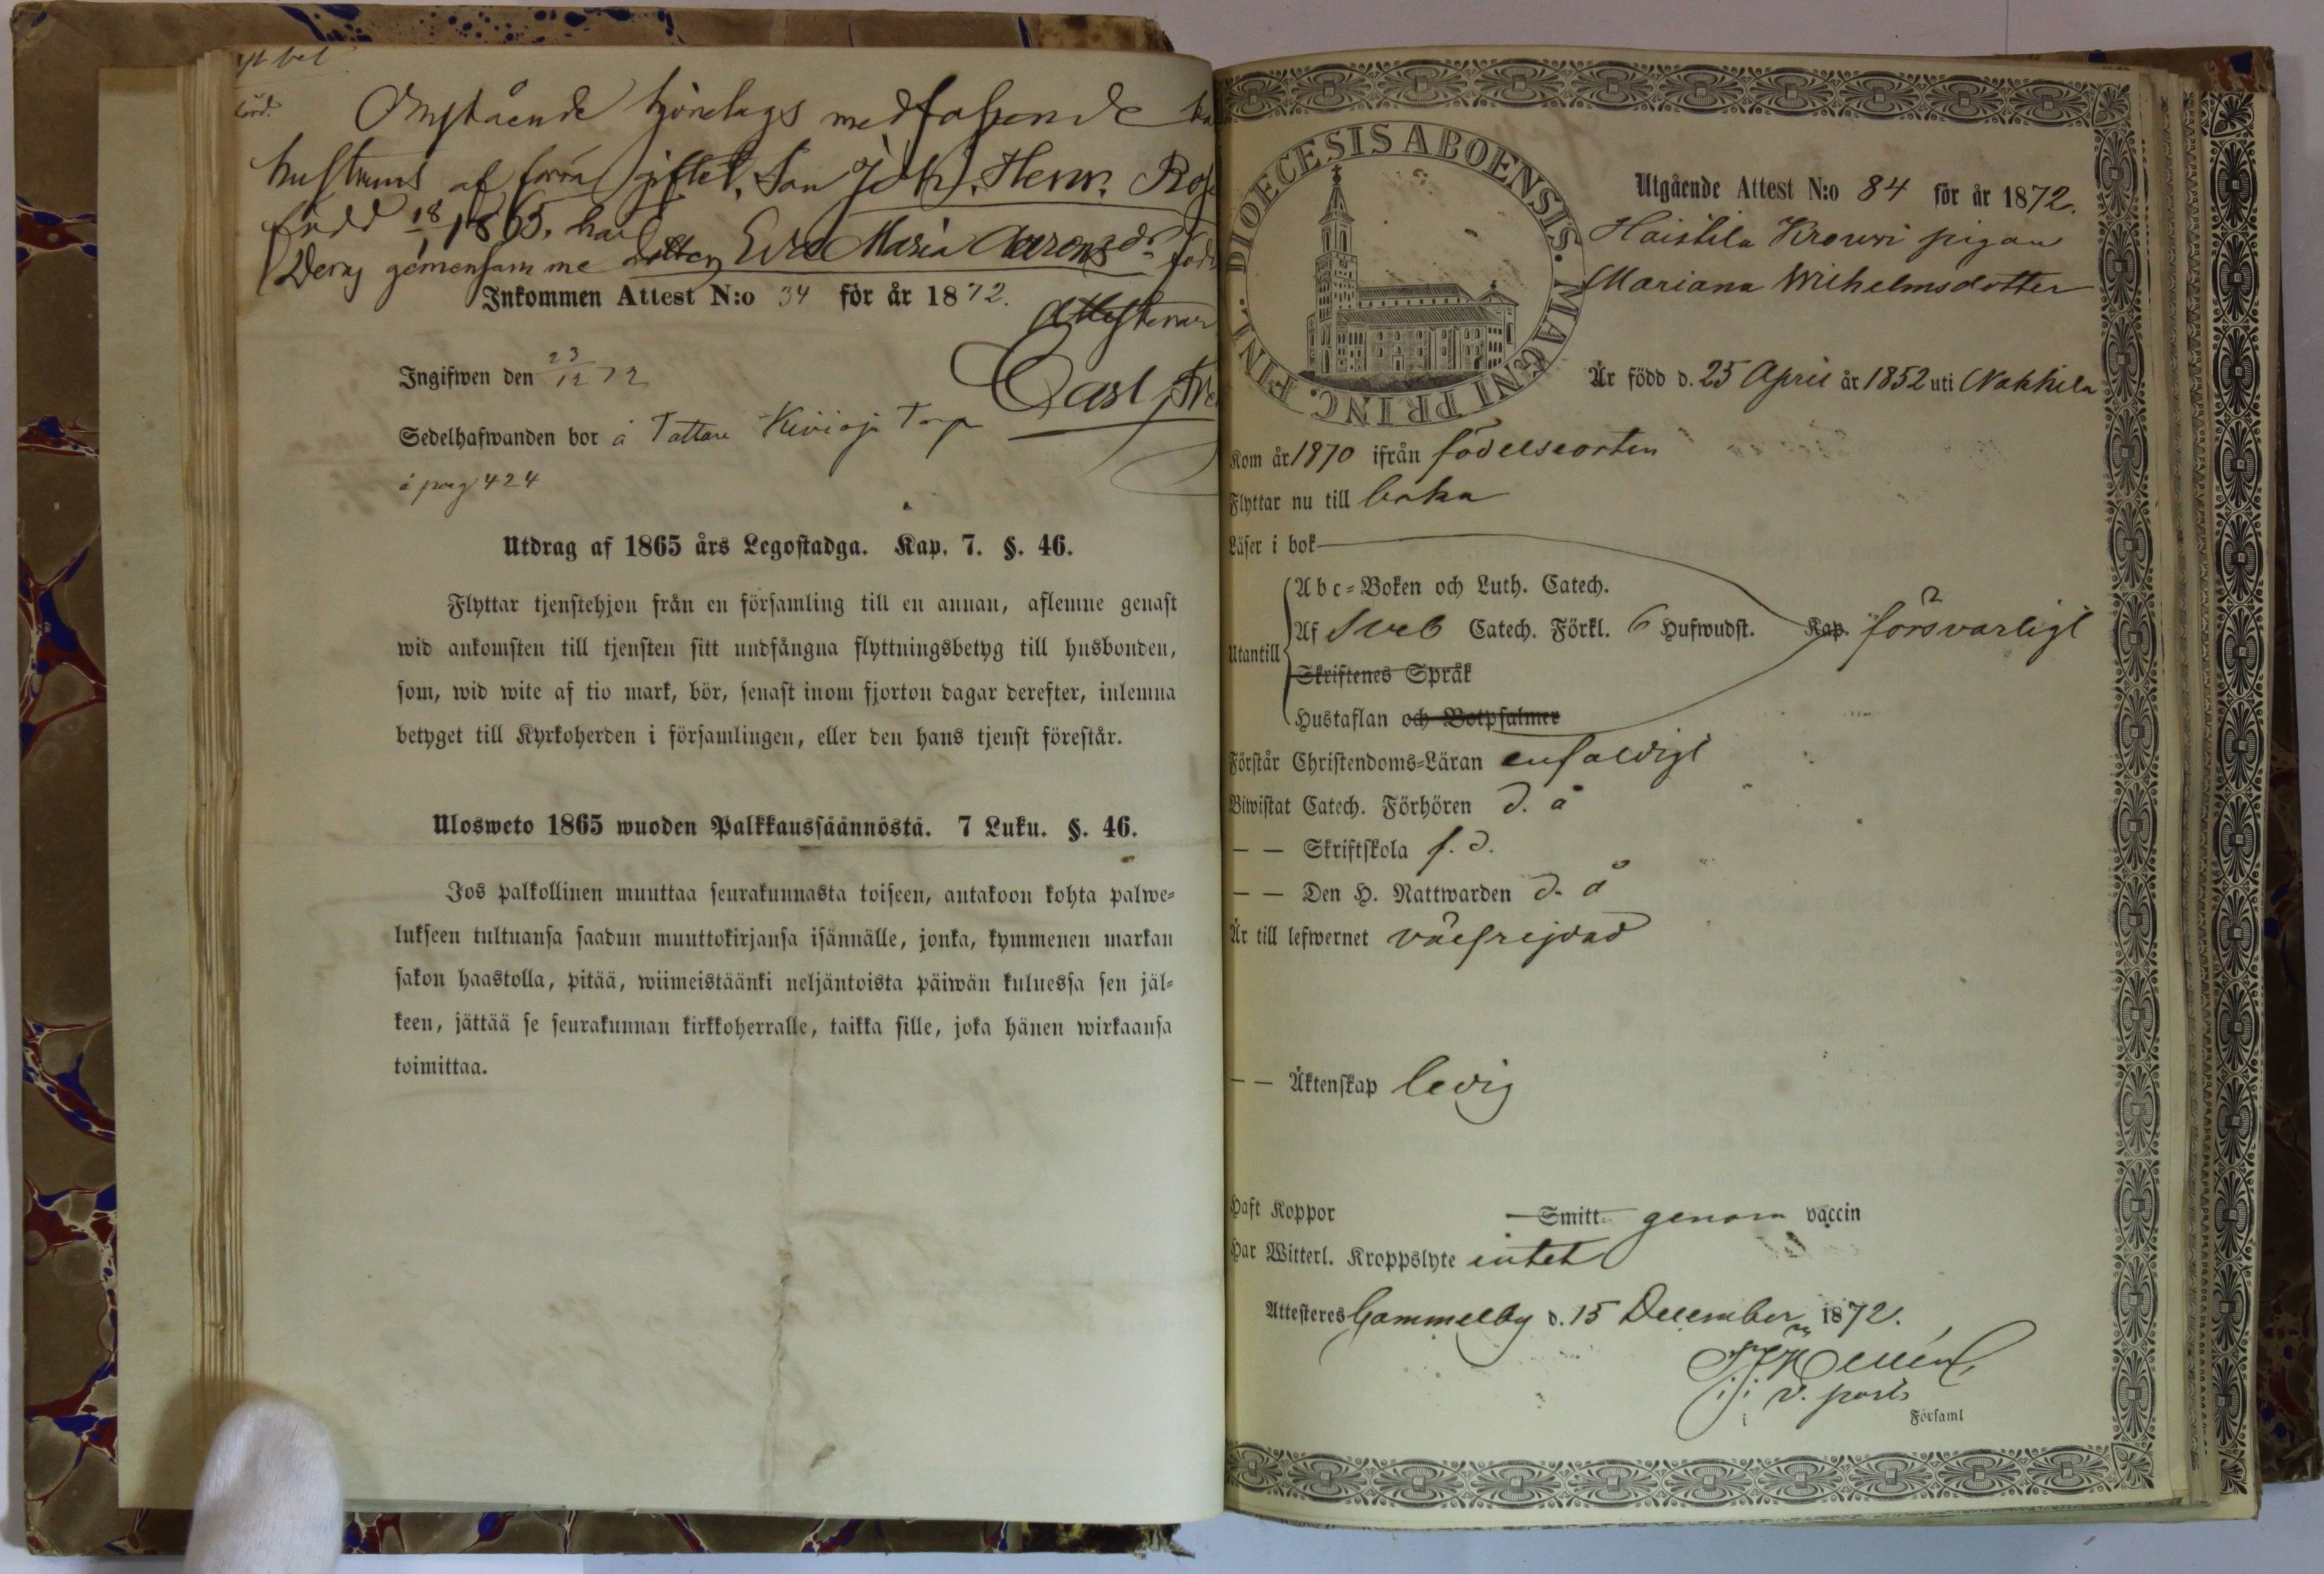 Omstående hjonelags medfoljande
hustruns af förra giftet, Son Joh. Henr.
född 18/1 1865, har
Deras gemensamma dotter Eva Maria Aaronsdr född
Inkommen Attest N:o 34 för år 1872.
Attesterar
Ingifwen den 23/12 72
Carl
Sedelhafwanden bor å Tattara Kivioja Torp
å pag 424
Utdrag af 1865 års Legostadga. Kap. 7. §. 46.
Flyttar tjenstehjon från en församling till en annan, aflemne genast
wid ankomsten till tjensten sitt undfångna flyttningsbetyg till husbonden,
som, wid wite af tio mark, bör, senast inom fjorton dagar derefter, inlemna
betyget till Kyrkoherden i församlingen, eller den hans tjenst förestår.
Ulosweto 1865 wuoden Palkkaussäännöstä. 7 Luku. §. 46.
Jos palkollinen muuttaa seurakunnasta toiseen, antakoon kohta palwe=
lukseen tultuansa saadun muuttokirjansa isännälle, jonka, kymmenen markan
sakon haastolla, pitää, wiimeistäänki neljäntoista päiwän kuluessa sen jäl=
keen, jättää se seurakunnan kirkkoherralle, taikka sille, joka hänen wirkaansa
toimittaa.
DIOECESIS ABOENSIS. MAGNI PRINC. FINL.
Utgående Attest N:o 84 för år 1872.
Haistila Krouvi pigan
Mariana Wilhelmsdotter
Är född d. 25 April år 1852 uti Nakkila
Kom år 1870 ifrån födelseorten
Flyttar nu till baka
Läser i bok
Abc=Boken och Luth. Catech.
Utantill Af Sveb Catech. Förkl. 6 Hufwudst. Kap. försvarligt
Skriftenes Språk
Hustaflan och Botpsalmer
Förstår Christendoms=Läran enfaldigt
Biwistat Catech. Förhören d. å
— — Skriftskola f. d.
— — Den H. Nattwarden d. å
Är till lefwernet välfrejdad
— — Äktenskap ledig
Haft Koppor Smitt genom vaccin
Har Witterl. Kroppslyte intet
Attesteres Gammelby d. 15 December 1872.
v. past.
i Församl